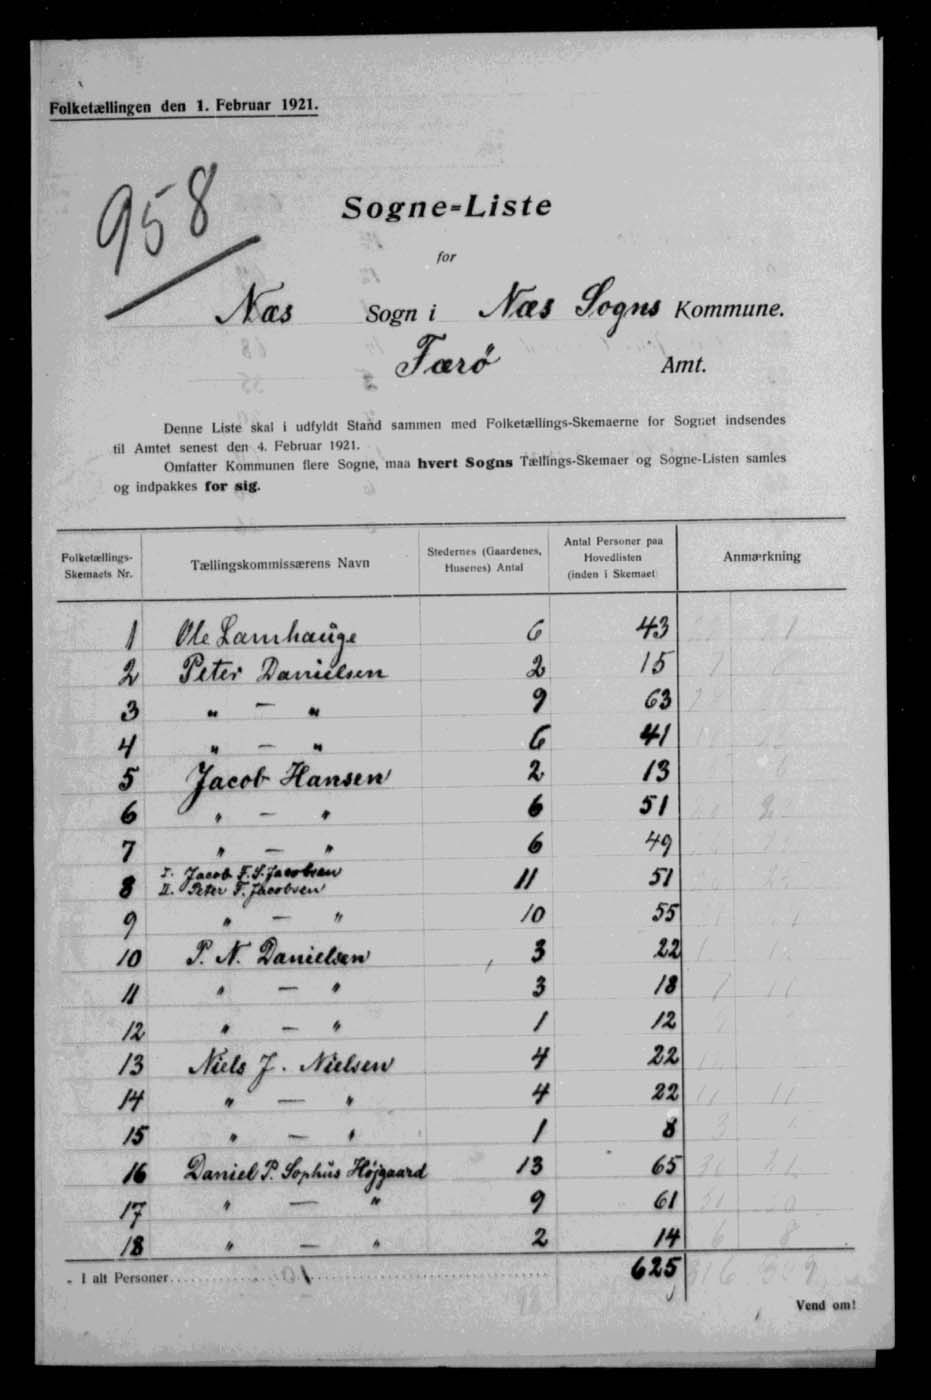 Folketællingen den 1. Februar 1921.
958
Sogne=Liste
for
Næs Sogn i Næs Sogns Kommune.
Færø Amt.
Denne Liste skal i udfyldt Stand sammen med Folketællings-Skemaerne for Sognet indsendes
til Amtet senest den 4. Februar 1921.
Omfatter Kommunen flere Sogne, maa hvert Sogns Tællings-Skemaer og Sogne-Listen samles
og indpakkes for sig.
Folketællings-Skemaets Nr. Tællingskommissærens Navn Stedernes (Gaardenes, Husenes) Antal Antal Personer paa Hovedlisten (inden i Skemaet) Anmærkning
1 Ole Lamhauge 6 43
2 Peter Danielsen 2 15
3 „ — „ 9 63
4 „ — „ 6 41
5 Jacob Hansen 2 13
6 „ — „ 6 51
7 „ — „ 6 49
8 I. Jacob F. S. Jacobsen
II. Peter F. Jacobsen 11 51
9 „ — „ 10 55
10 P. N. Danielsen 3 22
11 „ — „ 3 18
12 „ — „ 1 12
13 Niels J. Nielsen 4 22
14 „ — „ 4 22
15 „ — „ 1 8
16 Daniel P. Sophus Højgaard 13 65
17 „ — „ 9 61
18 „ — „ 2 14 6 8
I alt Personer 625 316 309
Vend om!